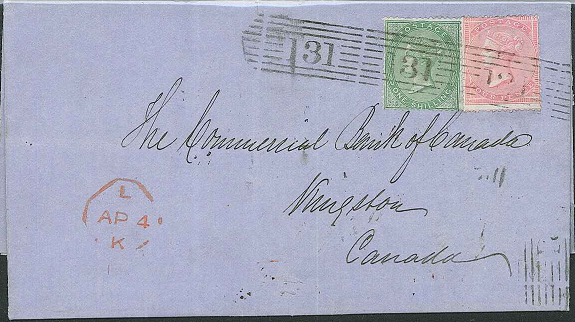 131 31
POSTAGE
ONE SHILLING
The Commercial Bank of Canada
Kingston
Canada
L
AP 4
K